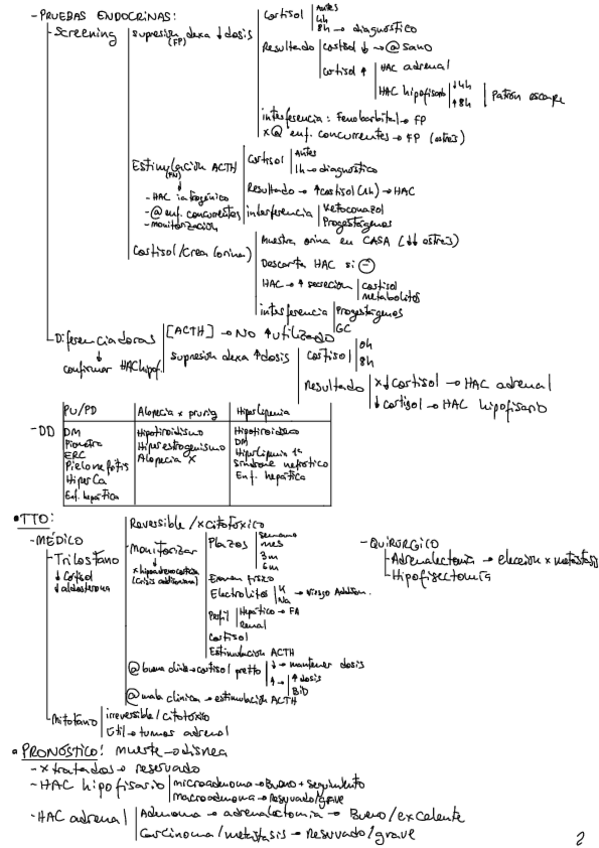 - PRUEBAS ENDOCRINAS:
- Screening
supresión dexa ↓ dosis
(FP)
Cortisol
Antes
4h
8h → diagnóstico
Resultado
cortisol ↓ → @ sano
cortisol ↑
HAC adrenal
HAC hipofisario
↓ 4h
↑ 8h
Patrón escape
interferencia: Fenobarbital → FP
x @ enf. concurrentes → FP (estrés)
Estimulación ACTH
(FN)
- HAC iatrogénico
- @ enf. concurrentes
- monitorización
Cortisol
Antes
1h → diagnóstico
Resultado → ↑ cortisol (1h) → HAC
interferencia
Ketoconazol
Progestágenos
Cortisol/Crea (orina)
Muestra orina en CASA (↓↓ estrés)
Descarta HAC si ⊖
HAC → ↑ secreción
cortisol
metabolitos
interferencia
Progestágenos
GC
- Diferenciadoras
confirmar HAC hipof.
[ACTH] → NO ↑ utilizado
supresión dexa ↑ dosis
cortisol
0h
8h
resultado
x ↓ cortisol → HAC adrenal
↓ cortisol → HAC hipofisario
- DD
PU/PD
Alopecia x prurig
Hiperlipemia
DM
Piometra
ERC
Pielonefritis
HiperCa
Enf. hepática
Hipotiroidismo
Hiperestrogenismo
Alopecia X
Hipotiroideo
DM
Hiperlipemia 1ª
Síndrome nefrótico
Enf. hepática
• TTO:
- MÉDICO
- Trilostano
↓ Cortisol
↓ aldosterona
Reversible / x citotóxico
- Monitorizar
x hipoadrenocortica
(crisis addisoniana)
Plazos
semana
mes
3m
6m
Examen físico
Electrolitos
K
Na
→ riesgo Addison.
Perfil
Hepático → FA
Renal
Cortisol
Estimulación ACTH
@ buena clínica → cortisol pretto
↓ → mantener dosis
↑ →
↑ dosis
BID
@ mala clínica → estimulación ACTH
- Mitotano
irreversible / citotóxico
útil → tumor adrenal
- QUIRÚRGICO
- Adrenalectomía → elección x metástasis
- Hipofisectomía
• PRONÓSTICO: muerte → disnea
- x tratados → reservado
- HAC hipofisario
microadenoma → Bueno + seguimiento
macroadenoma → reservado/grave
- HAC adrenal
Adenoma → adrenalectomía → Bueno/excelente
Carcinoma/metástasis → Reservado/grave
2